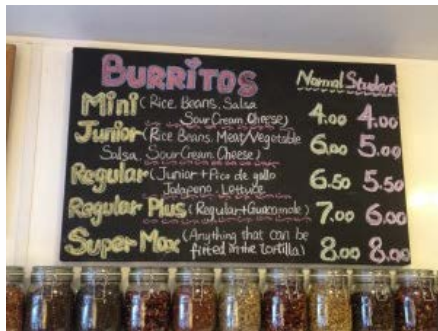 BURRITOS Normal Student
Mini (Rice, Beans, Salsa
Sour Cream, Cheese) 4.00 4.00
Junior (Rice, Beans, Meat/Vegetable
Salsa, Sour Cream, Cheese) 6.00 5.00
Regular (Junior + Pico de gallo
Jalapeno, Lettuce 6.50 5.50
Regular Plus (Regular+Guacamole) 7.00 6.00
Super Max (Anything that can be
fitted in the tortilla) 8.00 8.00